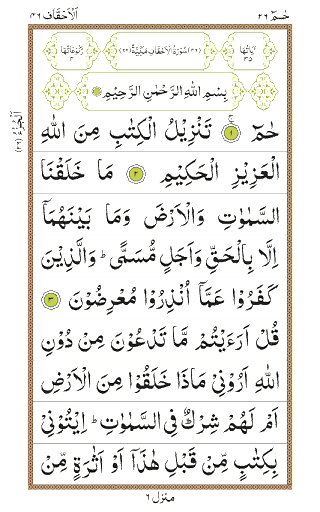 حٰمٓ ٢٦
اَلْاَحْقَاف ٤٦
اٰیَاتُهَا ٣٥
(٤٦) سُوْرَةُ الْاَحْقَافِ مَكِّیَّةٌ (٦٦)
رُكُوْعَاتُهَا ٤
بِسْمِ اللّٰهِ الرَّحْمٰنِ الرَّحِیْمِ
اَلْجُزْءُ (٢٦)
حٰمٓ ۚ‏ ١ تَنْزِیْلُ الْكِتٰبِ مِنَ اللّٰهِ
الْعَزِیْزِ الْحَكِیْمِ ٢ مَا خَلَقْنَا
السَّمٰوٰتِ وَالْاَرْضَ وَمَا بَیْنَهُمَاۤ
اِلَّا بِالْحَقِّ وَاَجَلٍ مُّسَمًّی ؕ وَالَّذِیْنَ
كَفَرُوْا عَمَّاۤ اُنْذِرُوْا مُعْرِضُوْنَ ٣
قُلْ اَرَءَیْتُمْ مَّا تَدْعُوْنَ مِنْ دُوْنِ
اللّٰهِ اَرُوْنِیْ مَاذَا خَلَقُوْا مِنَ الْاَرْضِ
اَمْ لَهُمْ شِرْكٌ فِی السَّمٰوٰتِ ؕ اِیْتُوْنِیْ
بِكِتٰبٍ مِّنْ قَبْلِ هٰذَاۤ اَوْ اَثٰرَةٍ مِّنْ
منزل ٦